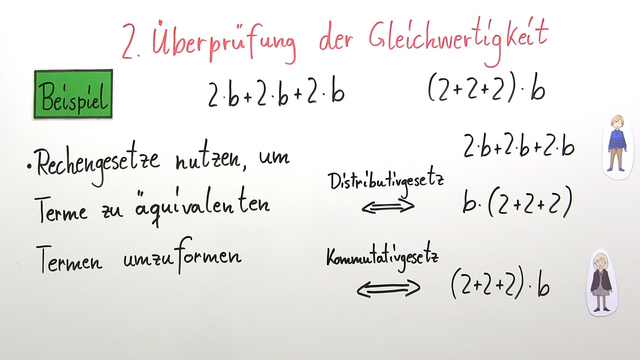 2. Überprüfung der Gleichwertigkeit
Beispiel
2·b+2·b+2·b
(2+2+2)·b
·Rechengesetze nutzen, um
Terme zu äquivalenten
Termen umzuformen
2·b+2·b+2·b
Distributivgesetz
⇔ b·(2+2+2)
Kommutativgesetz
⇔ (2+2+2)·b